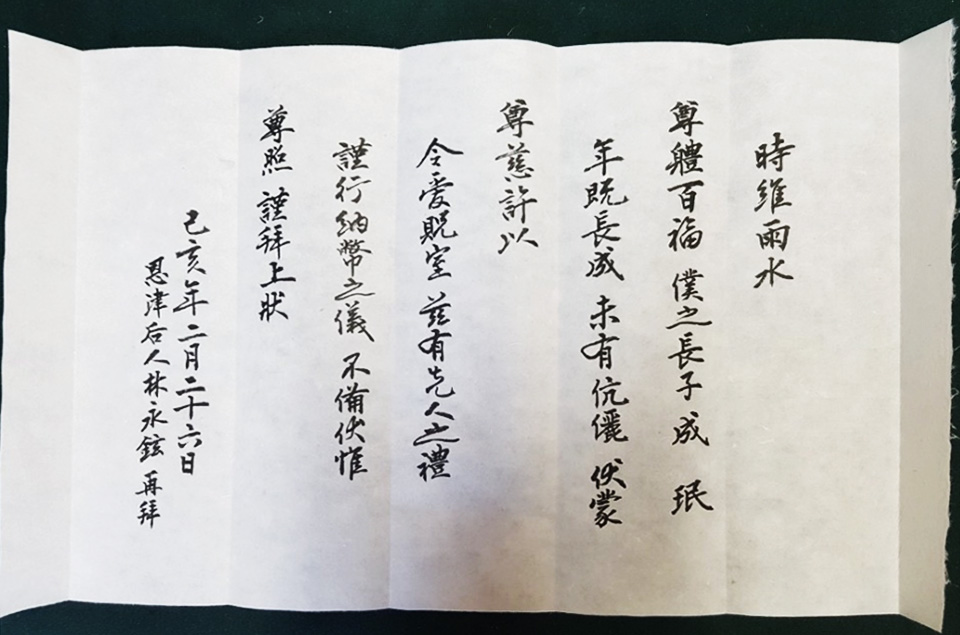 時維雨水
尊軆百福 僕之長子 成 珉
年既長成 未有伉儷 伏蒙
尊慈許以
令愛貺室 玆有先人之禮
謹行納幣之儀 不備伏惟
尊照 謹拜上狀
己亥年 二月 二十六日
恩津后人 林永鉉 再拜